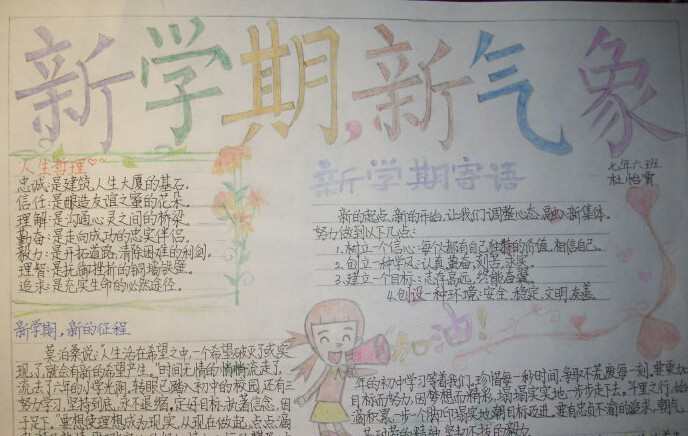 新学期,新气象
人生哲理
忠诚:是建筑人生大厦的基石.
信任:是酿造友谊之蜜的花朵.
理解:是沟通心灵之间的桥梁.
勤奋:是走向成功的忠实伴侣.
毅力:是开拓道路,清除困难的利剑.
理智:是抵御挫折的铜墙铁壁.
追求:是充实生命的必然途径.
新学期寄语
七年六班
杜怡霄
新的起点,新的开始,让我们调整心态,融入新集体.
努力做到以下几点:
1.树立一个信心:每个人都有自己独特的价值,相信自己.
2.创立一种学风:认真,勤奋,刻苦,踏实.
3.建立一个目标:志存高远,终能奋翼.
4.创设一种环境:安全,稳定,文明,友善.
加油!
新学期,新的征程
莫泊桑说:"人生活在希望之中一个希望破灭了或实
现了就会有新的希望产生."时间无情的悄悄流走了,
流去了六年的小学光阴,转眼已踏入初中的校园,还有三
努力学习,坚持到底,永不退缩,定好目标,执著信念,因
于足下.要想使理想成为现实,从现在做起,点点滴
年的初中学习等着我们,珍惜每一秒时间,争取不荒废每一刻,
目标而努力,因梦想而精彩,塌塌实实地一步步走下去.千里之行,始
滴积累,一步一个脚印塌实地朝目标迈进,要有忠贞不渝的追求,朝气